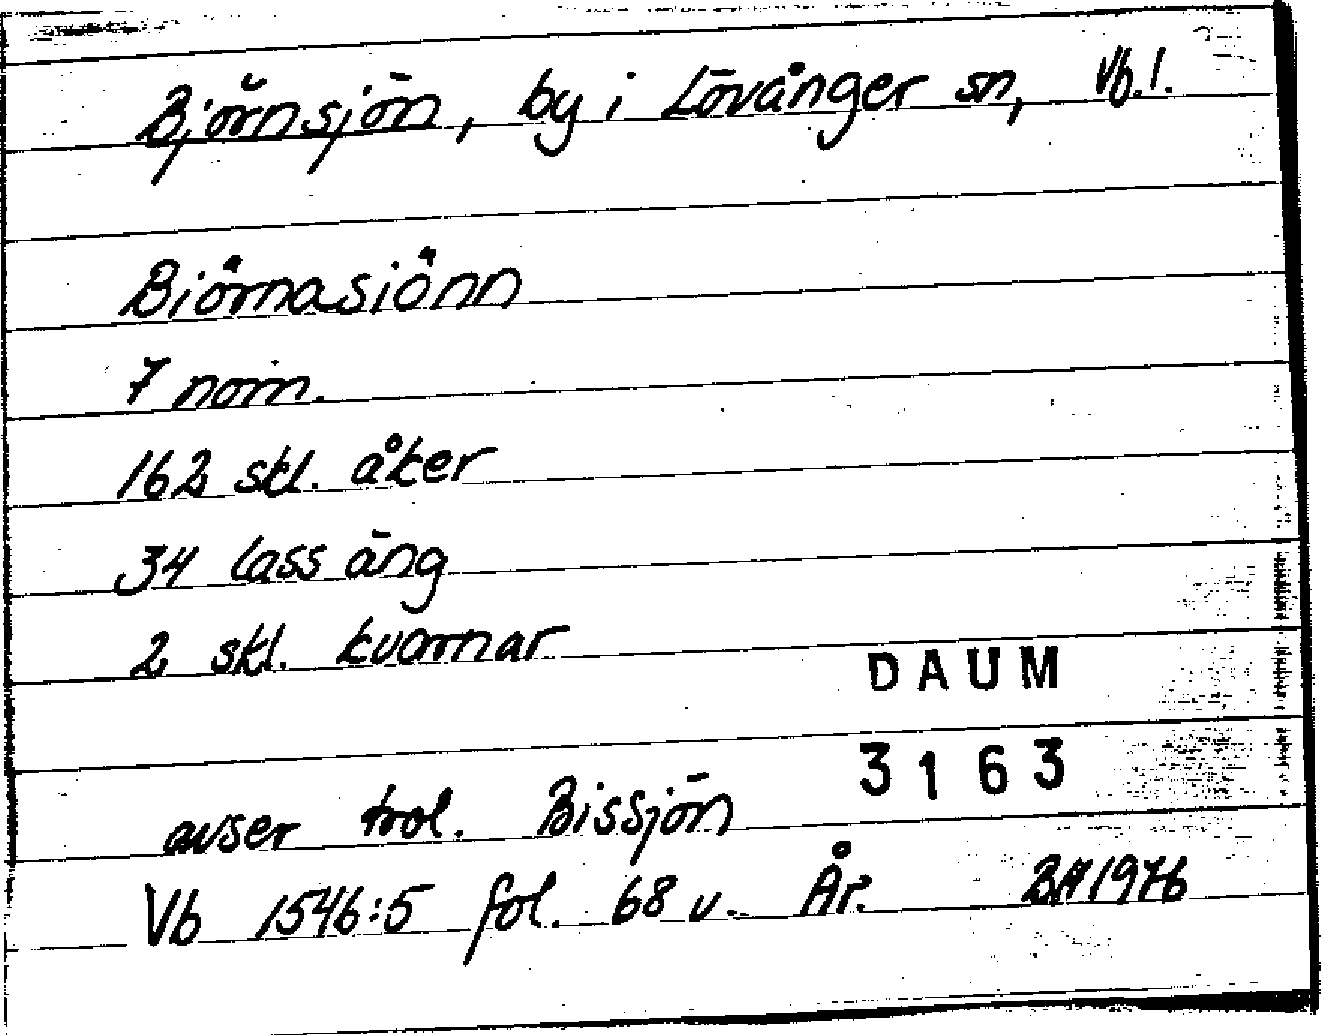 Björnsjön, by i Lövånger sn, Vb.l.
Biörnasiönn
7 nom.
162 skl. åker
34 lass äng
2 skl. kvarnar
DAUM
3163
avser trol. Bissjön
Vb 1546:5 fol. 68 v. År. BH 1976